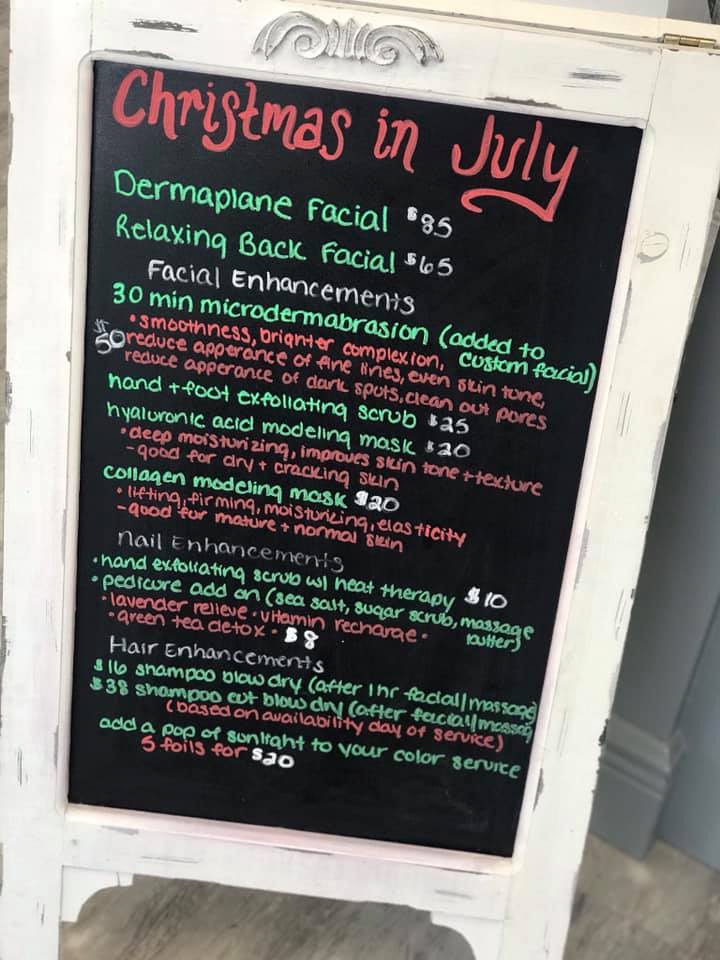 Christmas in July
Dermaplane Facial $85
Relaxing Back Facial $65
Facial Enhancements
30 min microdermabrasion (added to
custom facial)
• smoothness, brighter complexion,
$50 reduce apperance of fine lines, even skin tone,
reduce apperance of dark spots, clean out pores
hand + foot exfoliating scrub $25
hyaluronic acid modeling mask $20
• deep moisturizing, improves skin tone + texture
- good for dry + cracking skin
collagen modeling mask $20
• lifting, firming, moisturizing, elasticity
- good for mature + normal skin
nail Enhancements
• hand exfoliating scrub w/ heat therapy $10
• pedicure add on (sea salt, sugar scrub, massage
butter)
• lavender relieve • vitamin recharge •
• green tea detox • $8
Hair Enhancements
$16 shampoo blow dry (after 1hr facial/massage)
$38 shampoo cut blow dry (after facial/massag
(based on availability day of service)
add a pop of sunlight to your color service
5 foils for $20